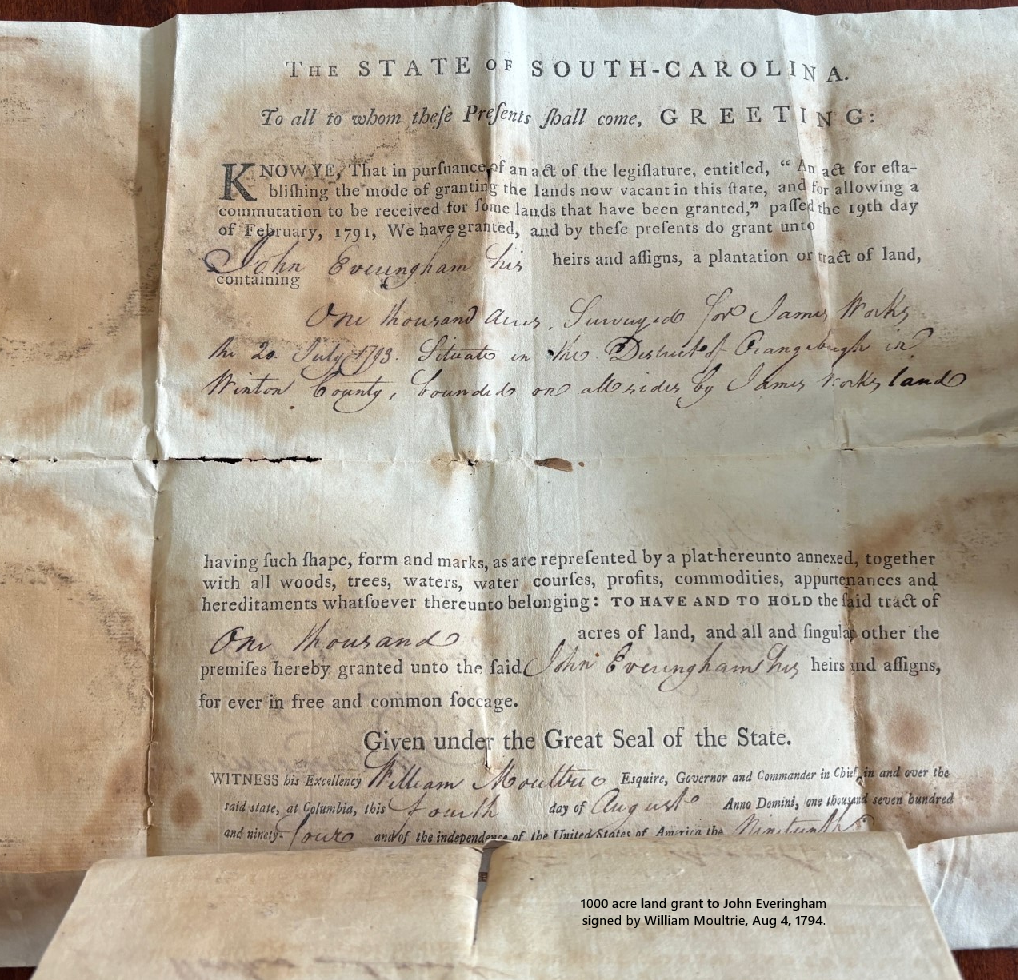 THE STATE OF SOUTH-CAROLINA.
To all to whom theſe Preſents ſhall come, GREETING:
KNOW YE, That in purſuance of an act of the legiſlature, entitled, “ An act for eſta-
bliſhing the mode of granting the lands now vacant in this ſtate, and for allowing a
commutation to be received for ſome lands that have been granted,” paſſed the 19th day
of February, 1791, We have granted, and by theſe preſents do grant unto
John Everingham his heirs and aſſigns, a plantation or tract of land,
containing
One thousand Acres, Surveyed for James Works
the 20 July 1793. Situate in the District of Orangeburgh in
Winton County, bounded on all sides by James Works land
having ſuch ſhape, form and marks, as are repreſented by a plat hereunto annexed, together
with all woods, trees, waters, water courſes, profits, commodities, appurtenances and
hereditaments whatſoever thereunto belonging: TO HAVE AND TO HOLD the ſaid tract of
One thousand acres of land, and all and ſingular other the
premiſes hereby granted unto the ſaid John Everingham his heirs and aſſigns,
for ever in free and common ſoccage.
Given under the Great Seal of the State.
WITNESS his Excellency William Moultrie Esquire, Governor and Commander in Chief, in and over the
said state, at Columbia, this Fourth day of August Anno Domini, one thousand seven hundred
and ninety-four and of the independence of the United States of America the Nineteenth
1000 acre land grant to John Everingham
signed by William Moultrie, Aug 4, 1794.